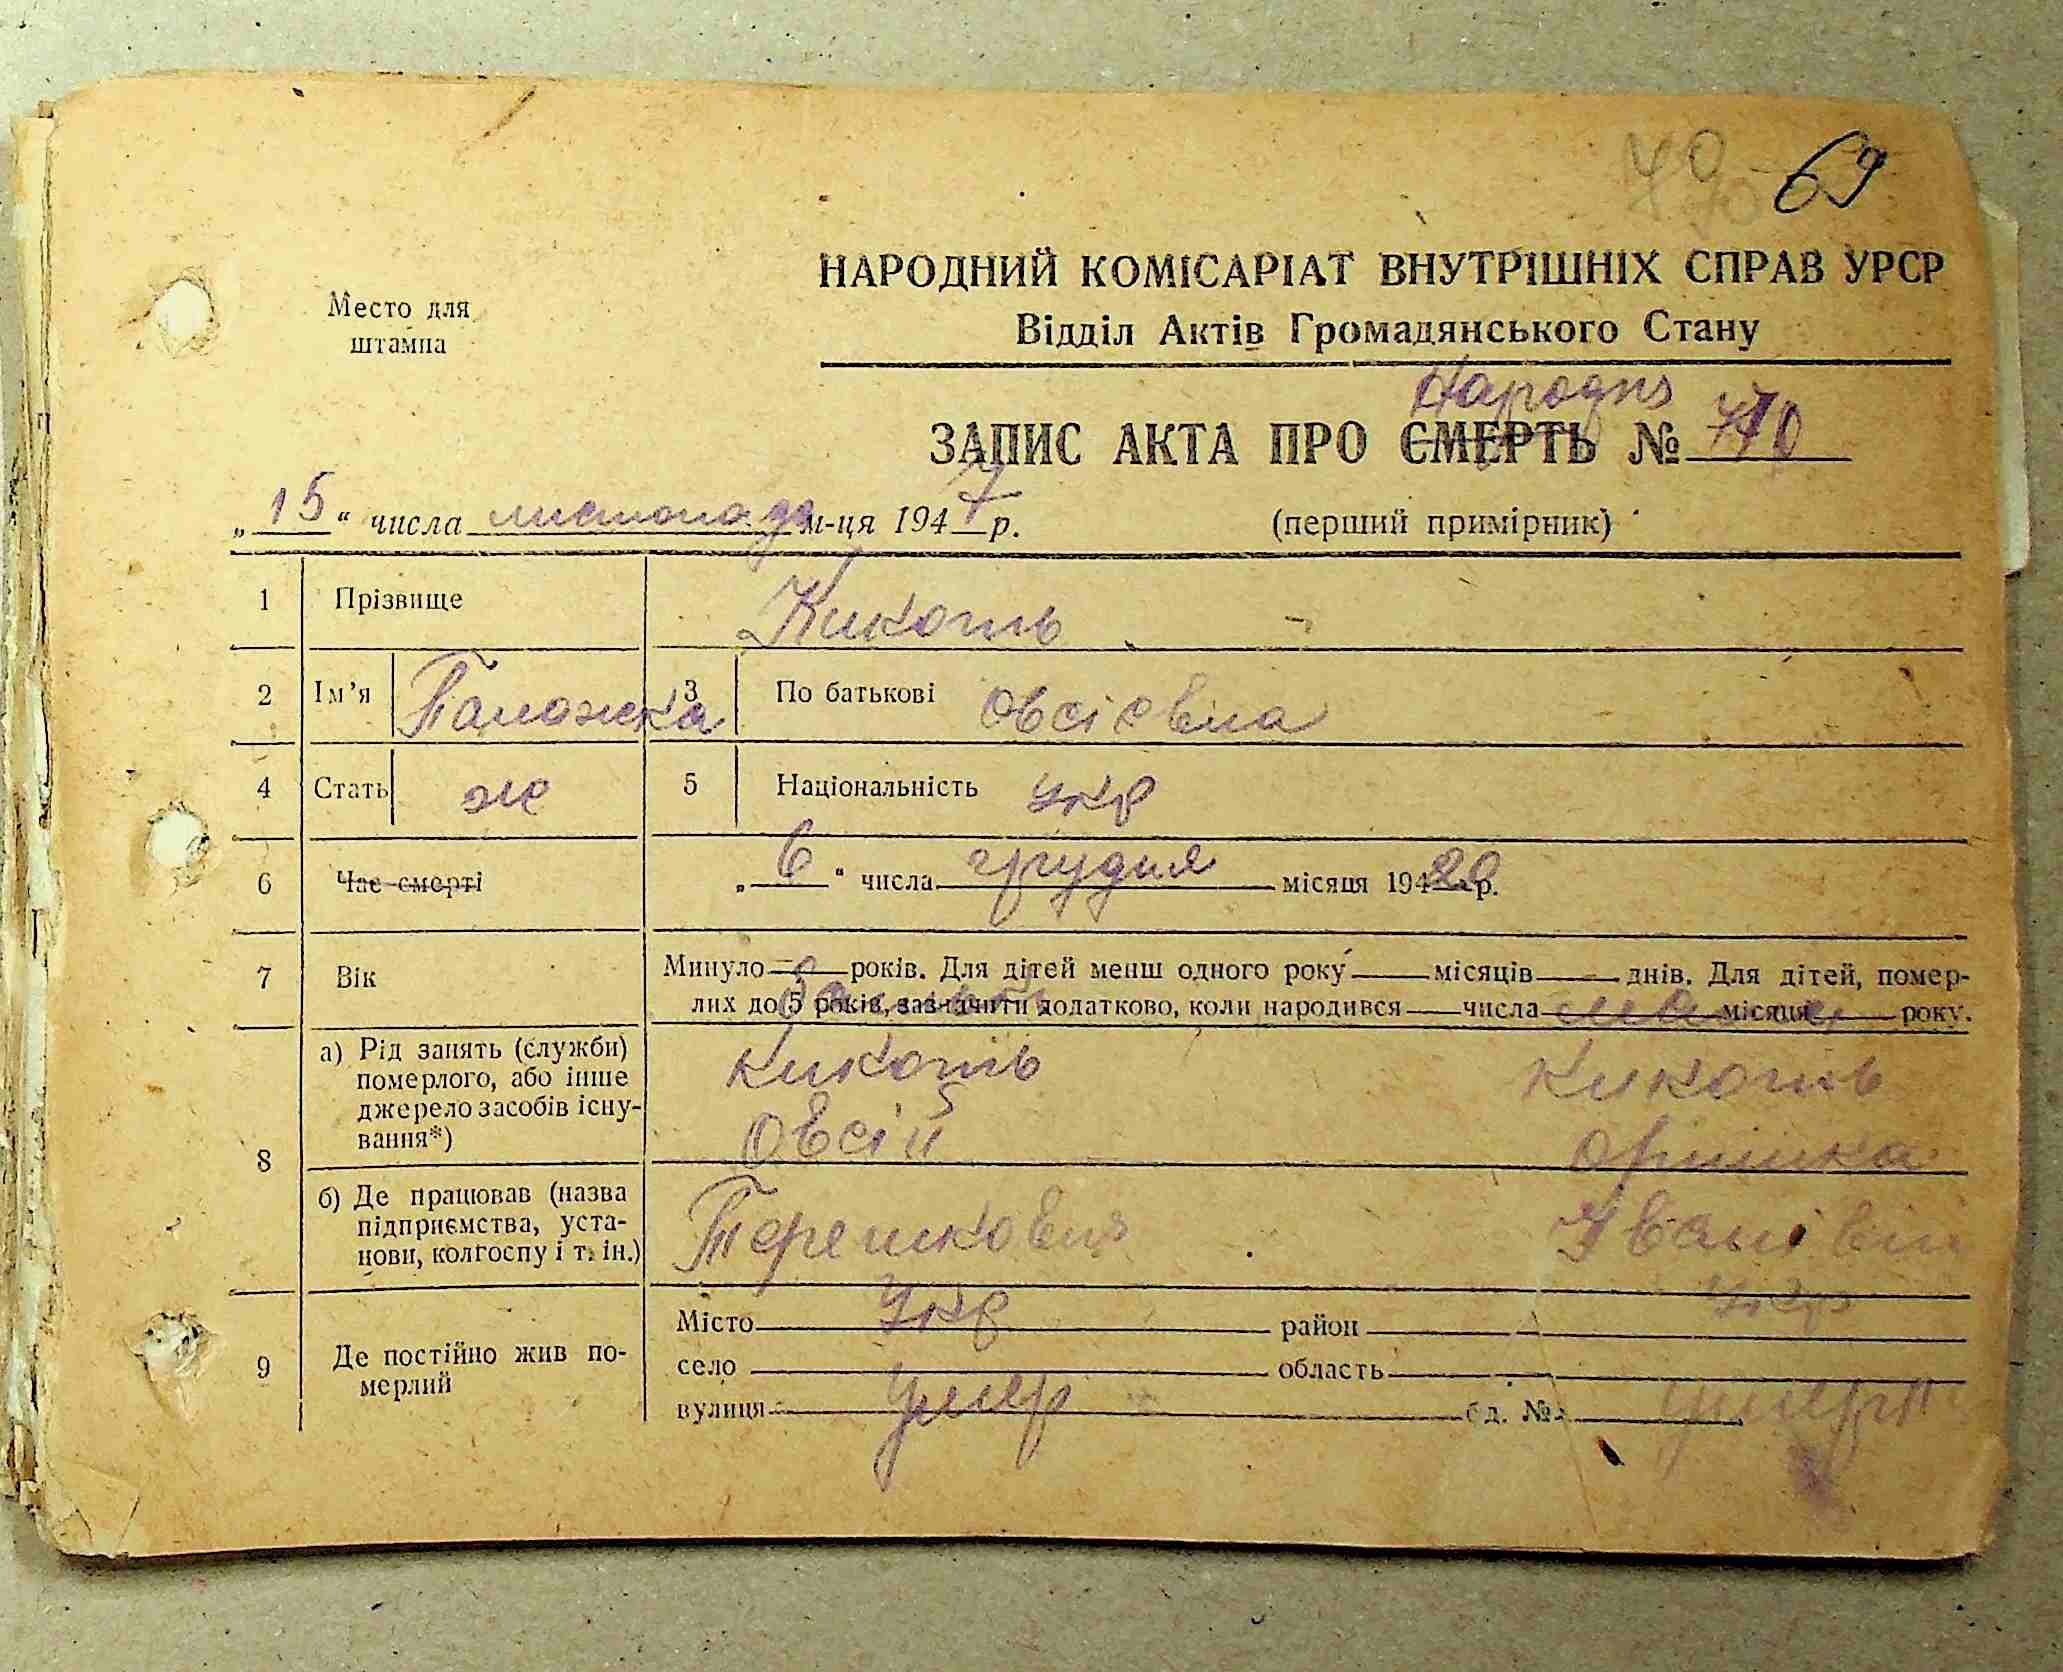 69
Место для
штампа
НАРОДНИЙ КОМІСАРІАТ ВНУТРІШНІХ СПРАВ УРСР
Відділ Актів Громадянського Стану
ЗАПИС АКТА ПРО СМЕРТЬ №
„15“ числа листопада м-ця 1947 р.
(перший примірник)
1 Прізвище Кикоть
2 Ім'я Паложка 3 По батькові Овсієвна
4 Стать ж 5 Національність укр
6 Час смерті „6“ числа грудня місяця 194 20 р.
7 Вік Минуло років. Для дітей менш одного року місяців днів. Для дітей, помер-
лих до 5 років, зазначити додатково, коли народився числа місяця року.
8 а) Рід занять (служби)
померлого, або інше
джерело засобів існу-
вання*)
Кикоть Кикоть
Овсій Оришка
б) Де працював (назва
підприємства, уста-
нови, колгоспу і т. ін.)
Терешкович Іванівни
9 Де постійно жив по-
мерлий
Місто укр район укр
село область
вулиця умер бд. № умерл